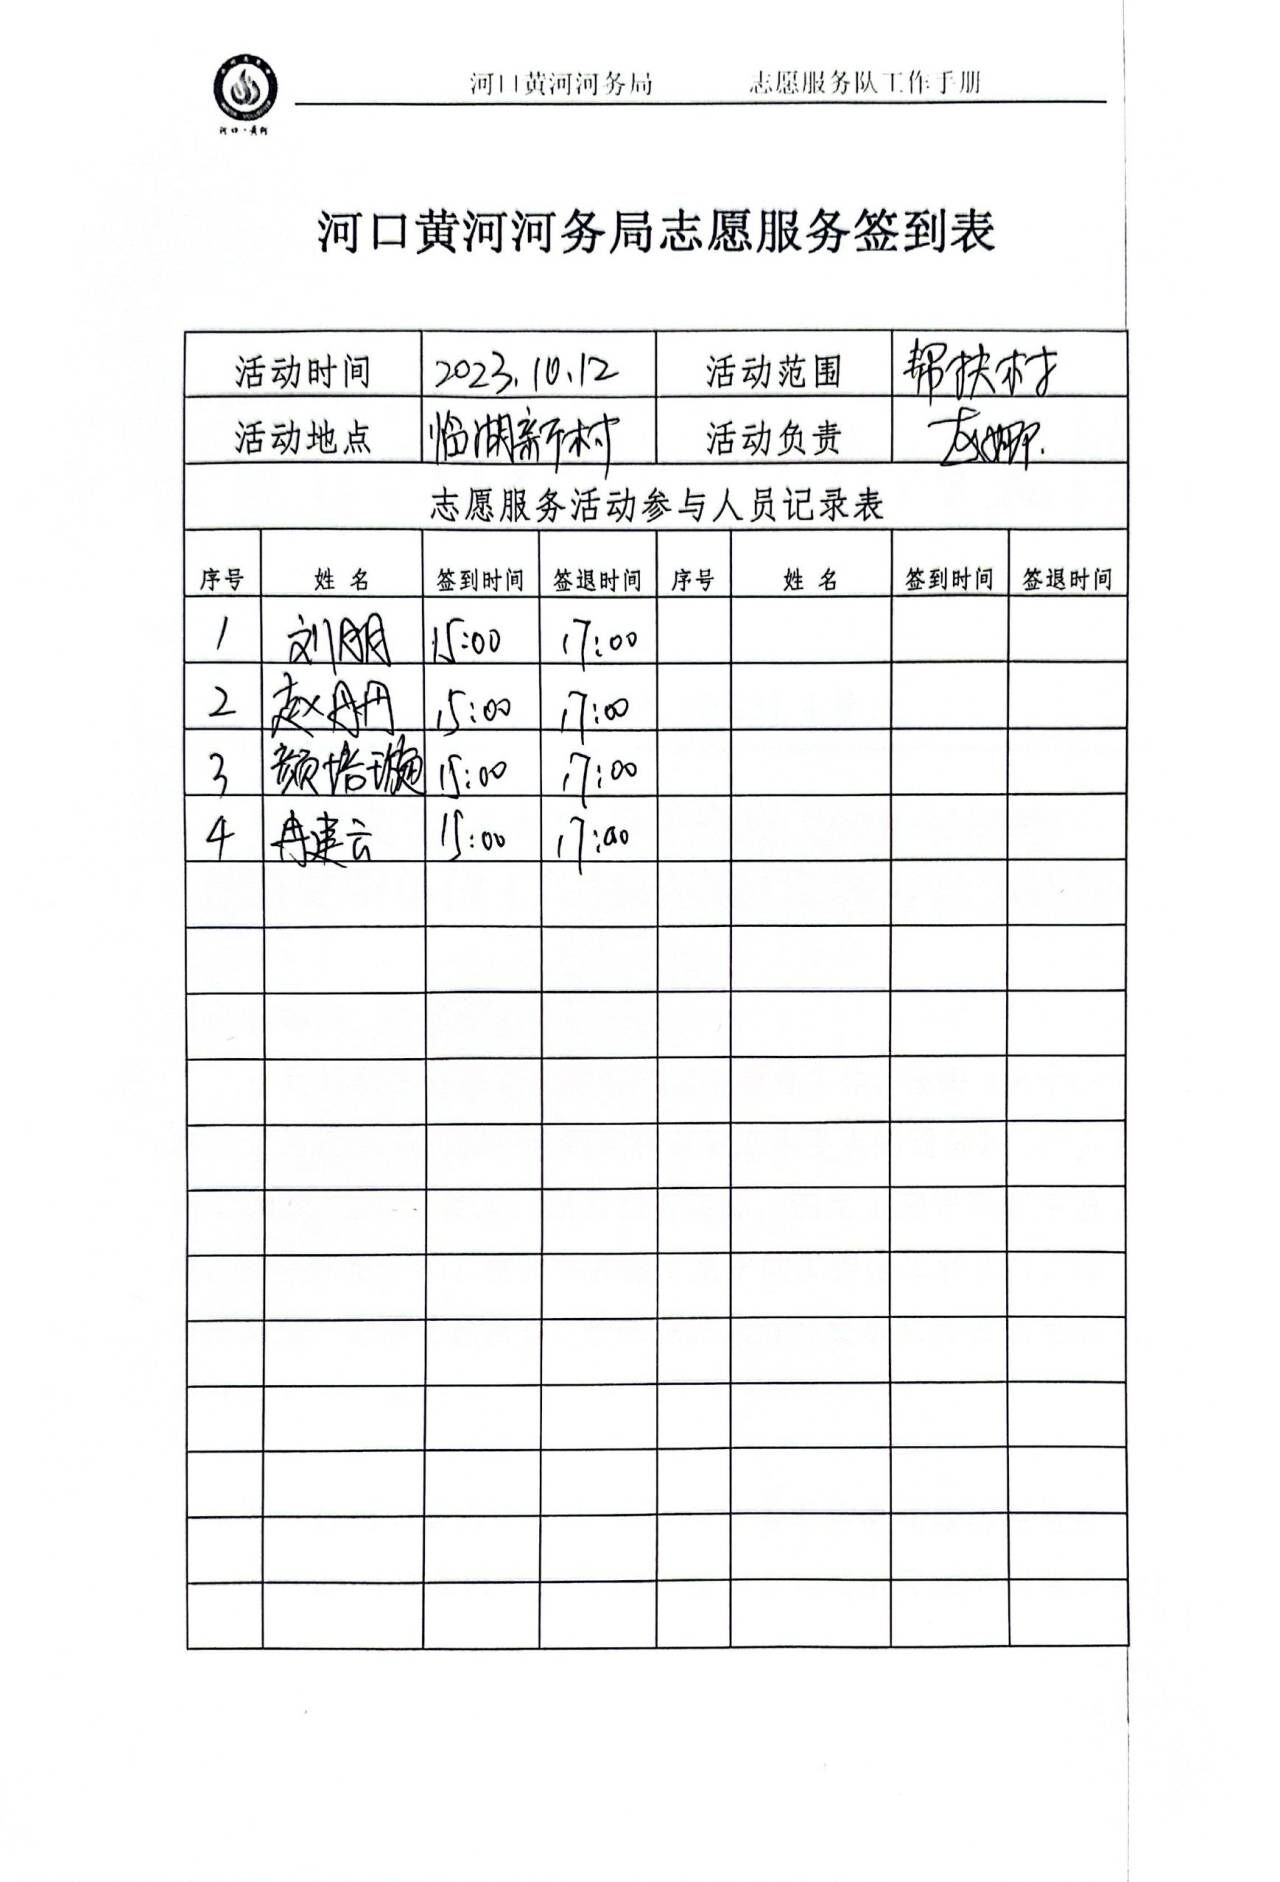 河口·黄河
河口黄河河务局 志愿服务队工作手册
河口黄河河务局志愿服务签到表
活动时间 2023.10.12 活动范围 帮扶村
活动地点 临湖新村 活动负责
志愿服务活动参与人员记录表
序号 姓名 签到时间 签退时间 序号 姓名 签到时间 签退时间
1 刘朋 15:00 17:00
2 赵丹丹 15:00 17:00
3 颜培璇 15:00 17:00
4 冉建云 15:00 17:00